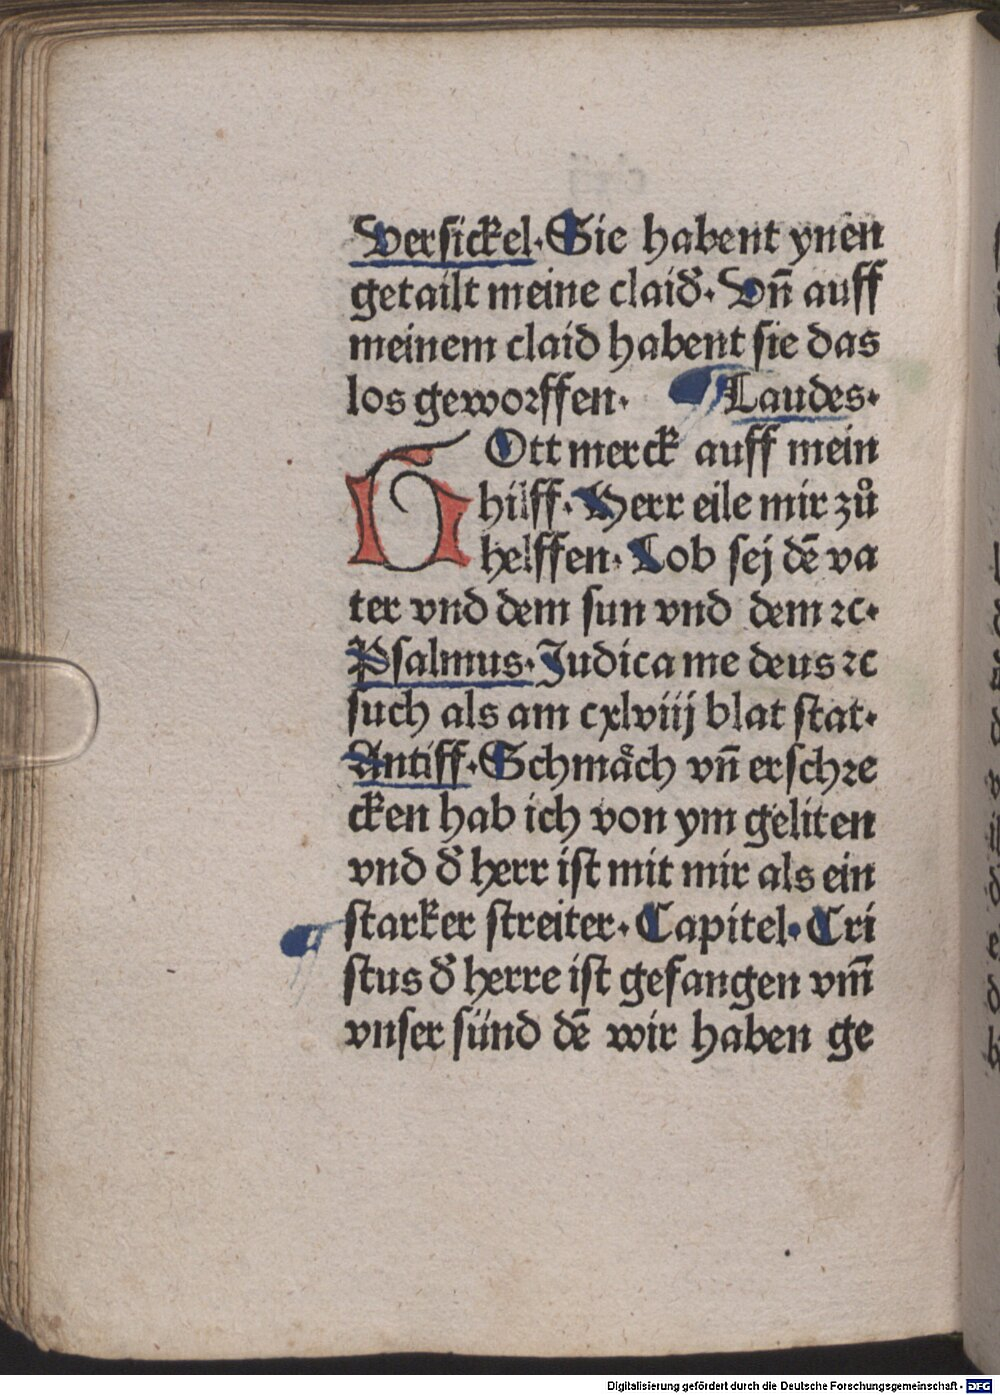 Versickel. Sie habent ynen
getailt meine claid̾. Vn̄ auff
meinem claid habent sie das
los geworffen. Laudes.
GOtt merck auff mein
hilff. Herr eile mir zů
helffen. Lob sej dē va
ter vnd dem sun vnd dem ⁊c.
Psalmus. Judica me deus ⁊c
such als am cxlviij blat stat.
Antiff. Schmaͤch vn̄ erschre
cken hab ich von ym geliten
vnd d̾ herr ist mit mir als ein
starker streiter. Capitel. Cri
stus d̾ herre ist gefangen vm̄
vnser sünd dē wir haben ge
Digitalisierung gefördert durch die Deutsche Forschungsgemeinschaft - DFG